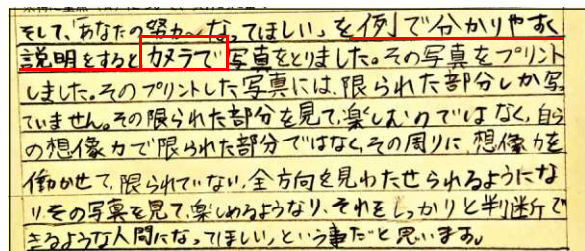 そして、「あなたの努力〜なってほしい」を例で分かりやすく
説明をするとカメラで写真をとりました。その写真をプリント
しました。そのプリントした写真には、限られた部分しか写
ていません。その限られた部分を見て、楽しむのではなく、自ら
の想像力で限られた部分ではなく、その周りに、想像力を
働かせて、限られていない、全方向を見わたせられるようにな
り、その写真を見て、楽しめるようなり、それをしっかりと判断で
きるような人間になってほしい、という事だと思います。